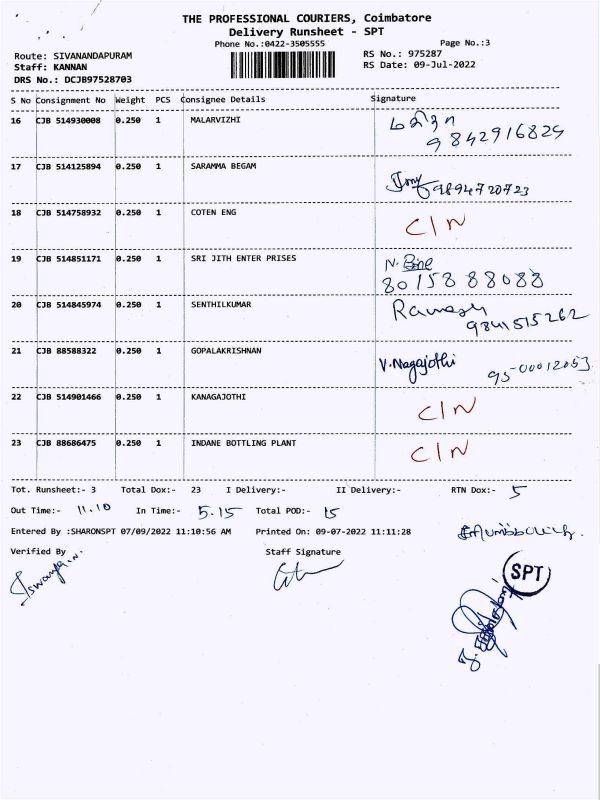 THE PROFESSIONAL COURIERS, Coimbatore
Delivery Runsheet - SPT
Phone No.:0422-3505555
Page No.:3
Route: SIVANANDAPURAM
RS No.: 975287
Staff: KANNAN
RS Date: 09-Jul-2022
DRS No.: DCJB97528703
S No Consignment No Weight PCS Consignee Details Signature
16 CJB 514930008 0.250 1 MALARVIZHI
9842916824
17 CJB 514125894 0.250 1 SARAMMA BEGAM
9894720723
18 CJB 514758932 0.250 1 COTEN ENG C/N
19 CJB 514851171 0.250 1 SRI JITH ENTER PRISES N.
80158 88088
20 CJB 514845974 0.250 1 SENTHILKUMAR Ramesh
9841515262
21 CJB 88588322 0.250 1 GOPALAKRISHNAN V.Nagajothi 95-00012053
22 CJB 514901466 0.250 1 KANAGAJOTHI C/N
23 CJB 88686475 0.250 1 INDANE BOTTLING PLANT C/N
Tot. Runsheet:- 3 Total Dox:- 23 I Delivery:- II Delivery:- RTN Dox:- 5
Out Time:- 11.10 In Time:- 5.15 Total POD:- 15
Entered By :SHARONSPT 07/09/2022 11:10:56 AM Printed On: 09-07-2022 11:11:28
Verified By Staff Signature
SPT